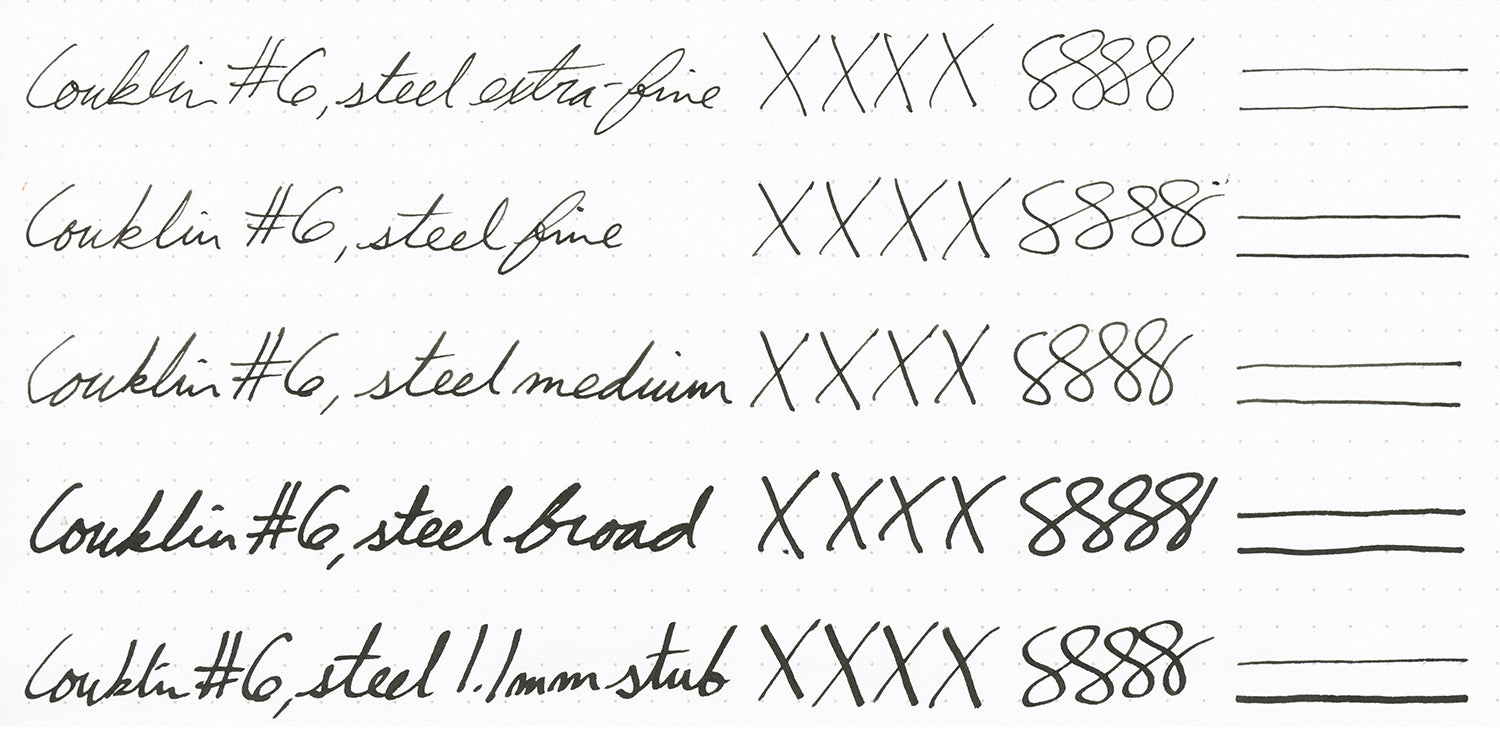 Conklin #6, steel extra-fine XXXX 8888
Conklin #6, steel fine XXXX 8888
Conklin #6, steel medium XXXX 8888
Conklin #6, steel broad XXXX 8888
Conklin #6, steel 1.1mm stub XXXX 8888